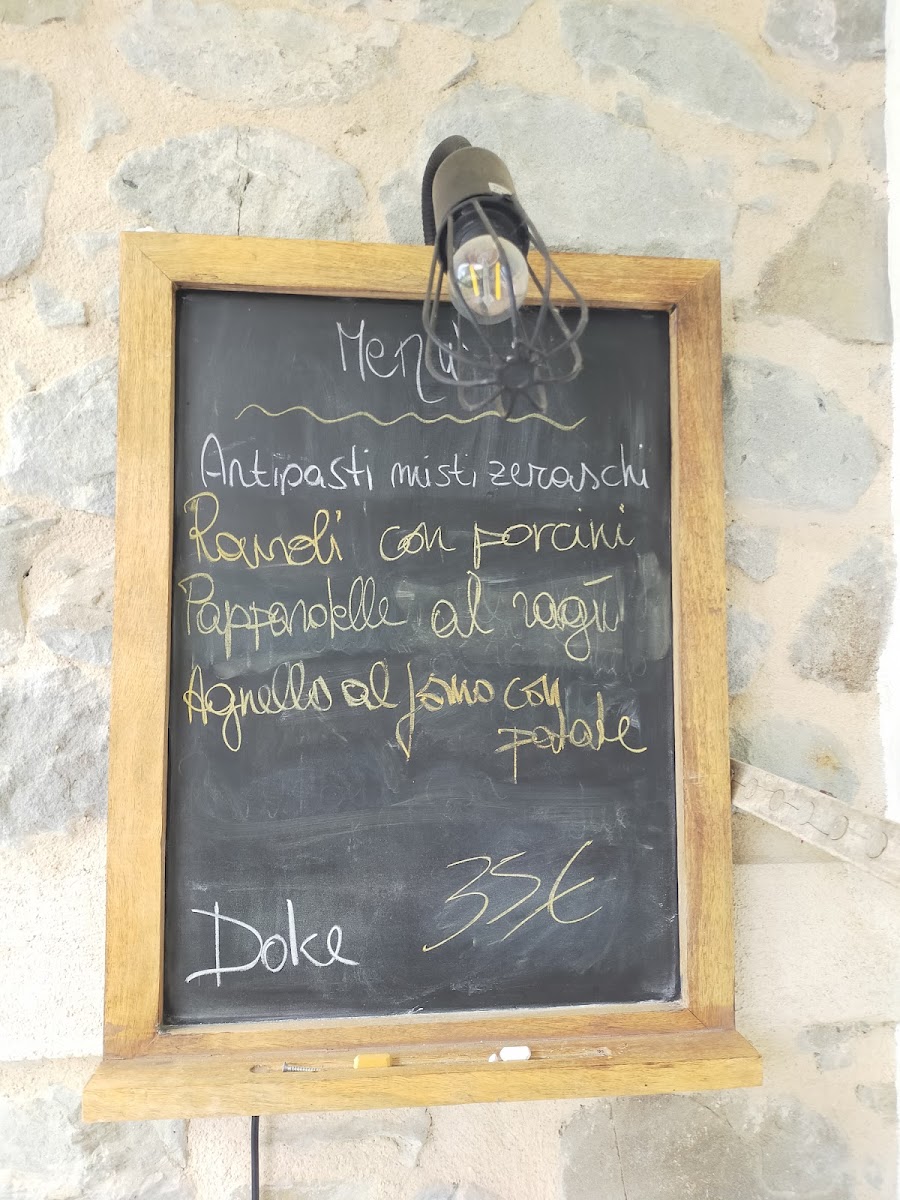 Menù
Antipasti misti zeraschi
Ravioli con porcini
Pappardelle al ragù
Agnello al forno con
patate
35€
Doke